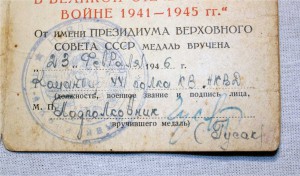 В ВЕЛИКОЙ ОТЕЧЕСТВЕННОЙ
ВОЙНЕ 1941—1945 гг."
От имени ПРЕЗИДИУМА ВЕРХОВНОГО
СОВЕТА СССР МЕДАЛЬ ВРУЧЕНА
„23" февраля 1946 г.
полка КВ НКВД
(должность, военное звание и подпись лица,
М. П. Подполковник
вручившего медаль) (Гусак)